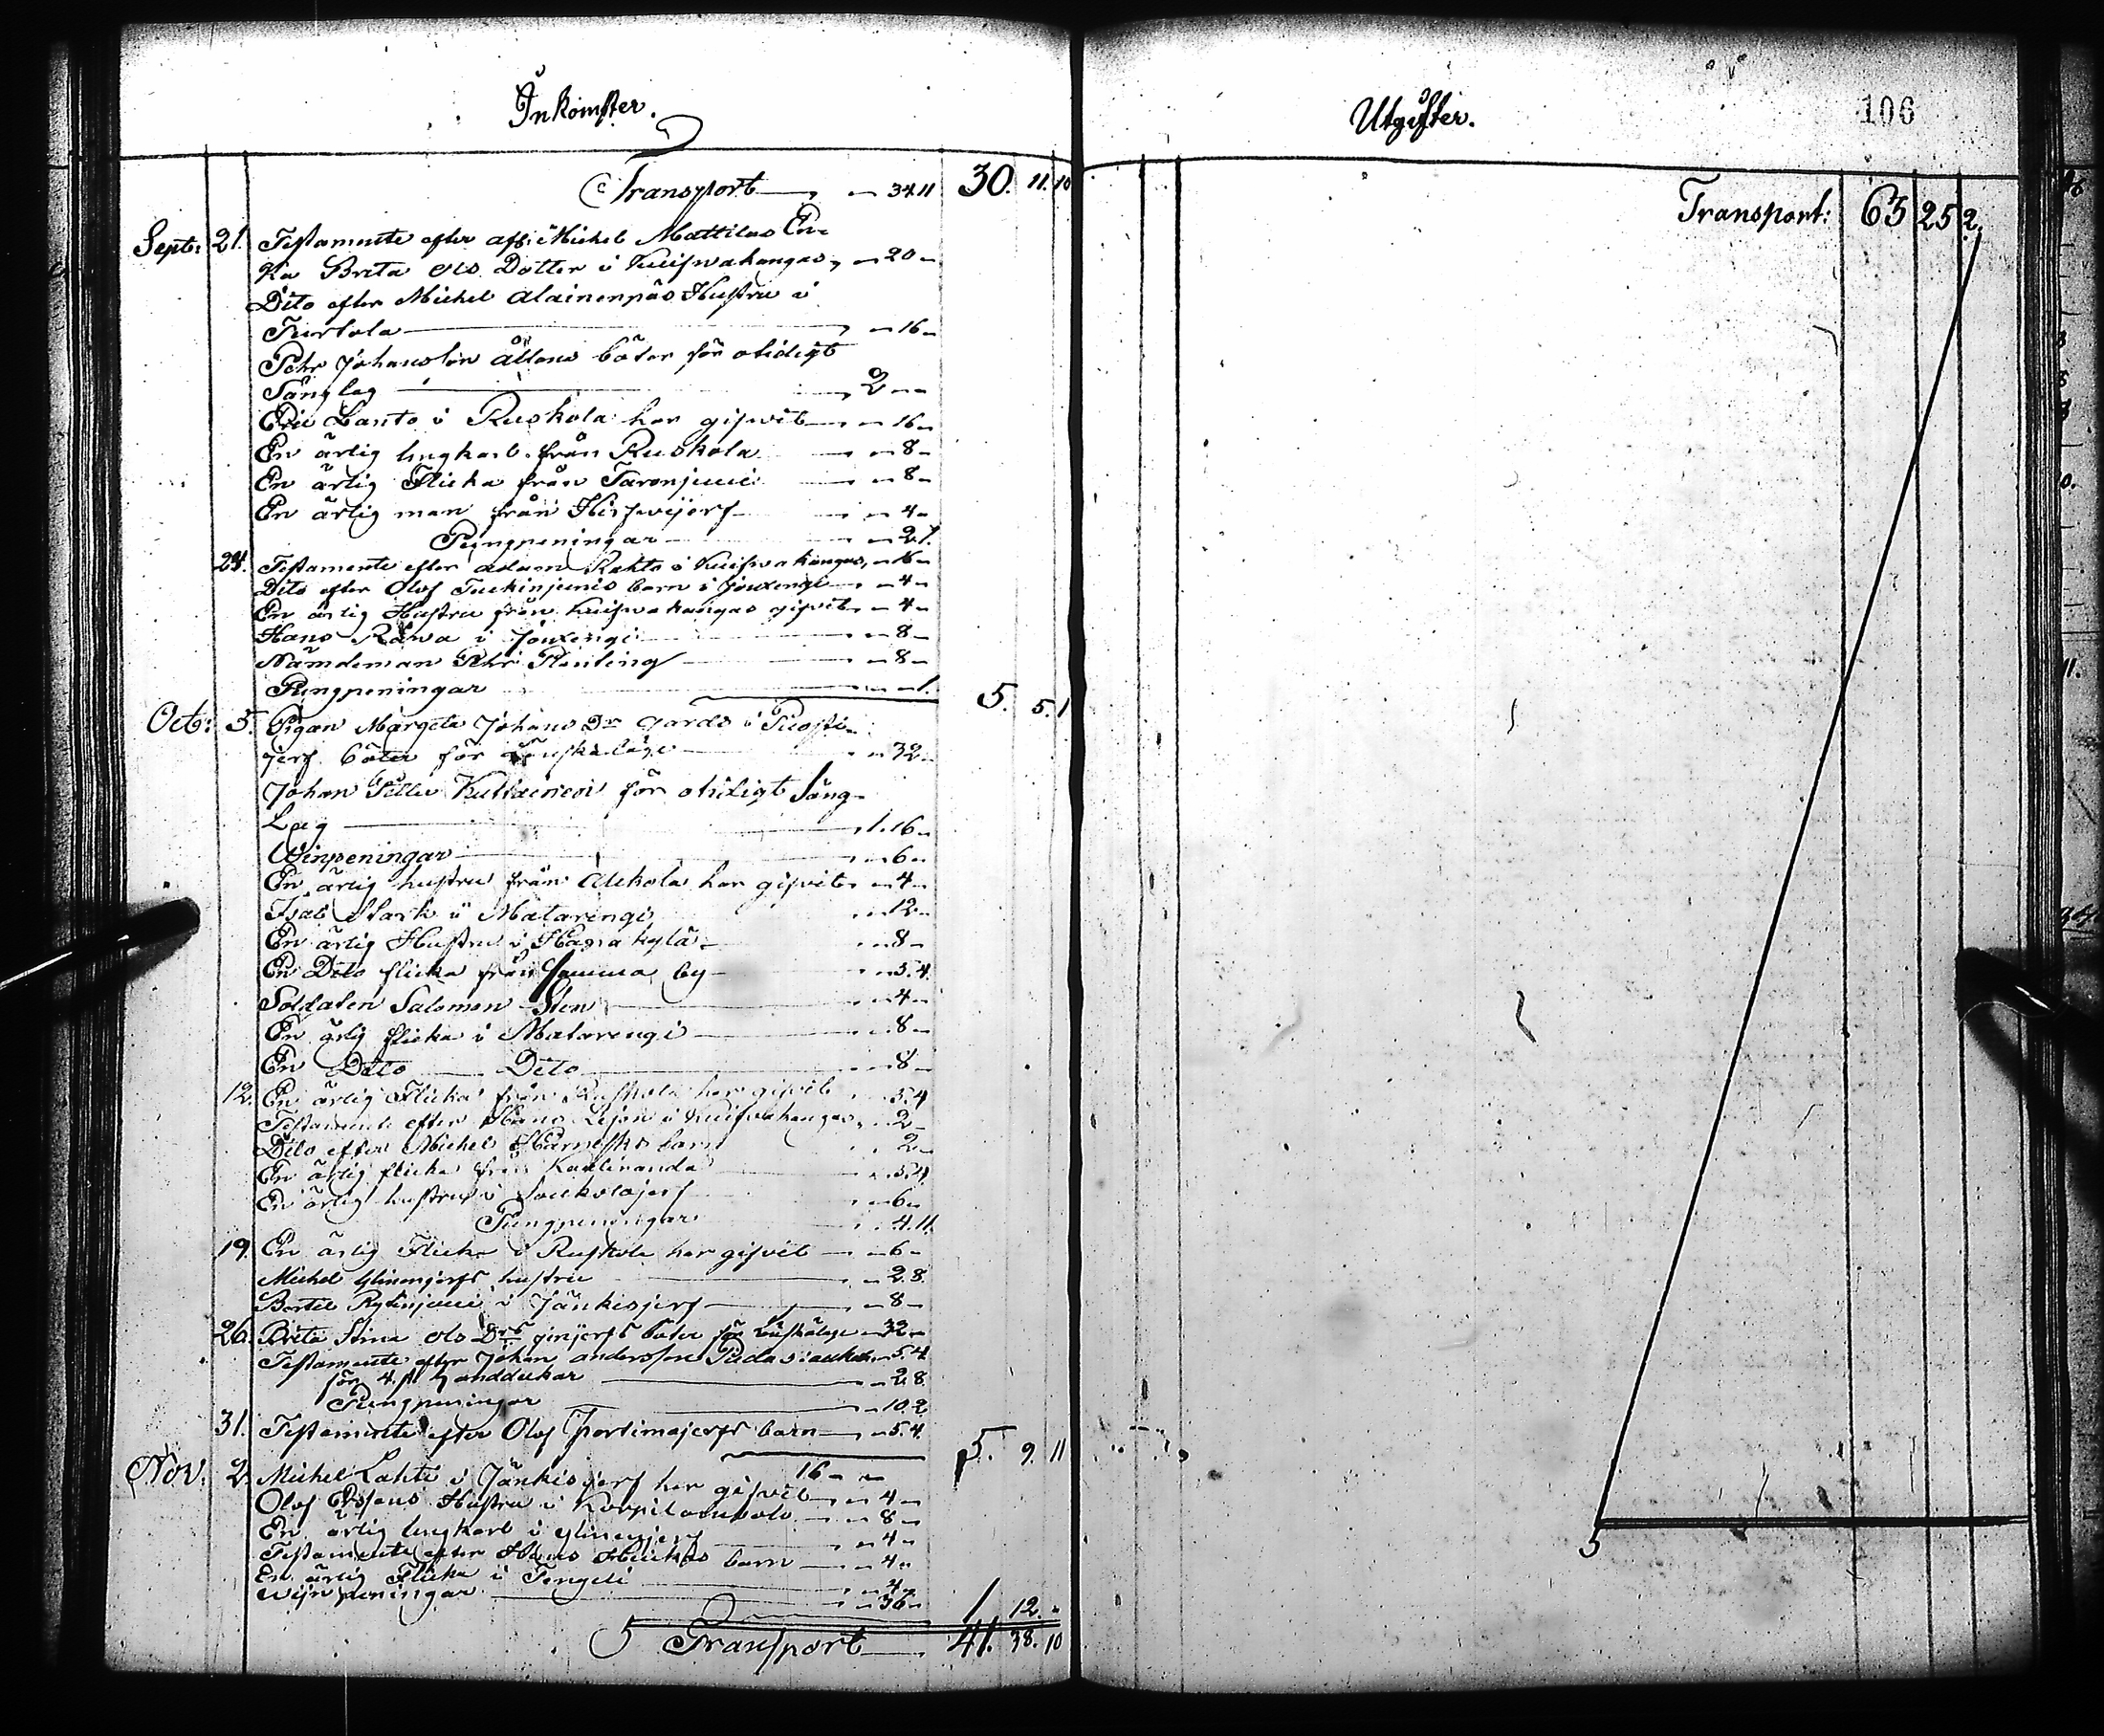 Inkomster.
Transport — „ 34 11 30. 11. 10
Sept: 21. Testamente efter afl: Michel Mattilas En-
ka Brita Ols Dotter i Kuiswakangas, „ 20 „
Dito efter Michel Alainenpäs Hustru i
Turtola — „ 16 „
Pehr Johansson böter för otidigt
Sänglag — 2 „ „
Eric Lanto i Ruskola har gifwit — „ 16 „
En ärlig ungkarl från Ruskola — „ 8 „
En ärlig Flicka från — „ 8 „
En ärlig man från — „ 4 „
Pungpeningar — „ 2. 1.
28. Testamente efter Adam Rahto i Kuiswakangas, „ 16 „
Dito efter Olof barn i Jouxengi — „ 4 „
En ärlig Hustru från Kuiswakangas gifwit „ 4 „
Hans Råwa i Jouxengi — „ 8 „
Nämdeman Pehr — „ 8 „
Pungpeningar — „ „ 1. 5. 5. 1
Oct: 5. Pigan Margeta Johans Dr i
jerf böter för — „ 32 „
Johan för otidigt Säng-
Lag — 1. 16 „
Winpeningar — „ 6 „
En ärlig hustru från har gifwit „ 4 „
Isac Stark i Matarengi „ 12 „
En ärlig Hustru i kylä — „ 8 „
En Dito flicka från Samma by — „ 5. 4.
Soldaten Salomon Sten — „ 4 „
En ärlig flicka i Matarengi — „ 8 „
En Dito — Dito — „ 8 „
12. En ärlig Flicka från Ruskola har gifwit „ 5. 4
Testamente efter Hans Lejon i Kuiswakangas, „ 2 „
Dito efter Michel barn „ 2 „
En ärlig flicka från Kaulinranda „ 5. 4
En ärlig hustru i jerf „ 6 „
Pungpeningar „ 4. 11.
19. En ärlig Flicka i Ruskola har gifwit — „ 6 „
Michel Ylinenjerfs hustru — „ 2. 8.
Bertil i Jänkisjerf — „ 8 „
26. Brita Stina Ols Drs böter för „ 32 „
Testamente efter Johan Andersson „ 5. 4
för 4. st handdukar — „ 2. 8
Pungpeningar — „ 10. 2
31. Testamente efter Olof Portimojerfs barn — „ 5. 4. 5. 9. 11
Nov. 2. Michel Lahti i Jänkisjerf har gifwit 16 „ „ 4 „
Olof Hustru i Korpilombolo — „ 8 „
En ärlig ungkarl i Ylinenjerf — „ 4 „
Testamente efter Hans barn — „ 4 „
En ärlig Flicka i Tengeli — „ 4 „
Wijn peningar — „ 36 „ 1 12. „
Transport — 41. 38. 10
Utgifter.
106
Transport: 63 25 2.